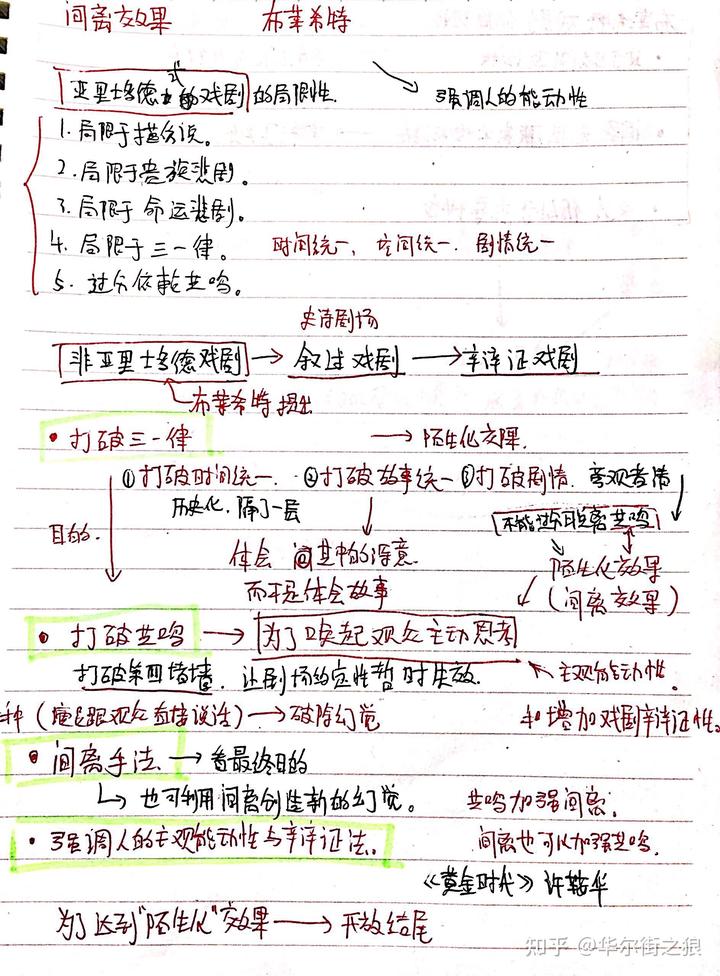 间离效果 布莱希特
亚里士多德式的戏剧的局限性 → 强调人的能动性
1. 局限于模仿说。
2. 局限于贵族悲剧。
3. 局限于命运悲剧。
4. 局限于三一律。 时间统一、空间统一、剧情统一
5. 过分依赖共鸣。
史诗剧场
非亚里士多德戏剧 → 叙述戏剧 → 辩证戏剧
布莱希特提出
• 打破三一律 → 陌生化效果
①打破时间统一. ②打破故事统一 ③打破剧情. 客观看情
历史化.隔了一层
目的.
不能近距离共鸣
体会 其中的深意
而不是体会故事
陌生化效果
(间离效果)
• 打破共鸣 → 为了唤起观众主动思考
打破第四堵墙.让剧场约定性暂时失效. 主观能动性.
种(演员跟观众直接说话) → 破除幻觉 和增加戏剧辩证性。
• 间离手法. → 看最终目的
也可利用间离创造新的幻觉。 共鸣加强间离.
• 强调人的主观能动性与辩证法. 间离也可以加强共鸣.
《黄金时代》许鞍华
为了达到"陌生化"效果 → 开放结尾
知乎 @华尔街之狼